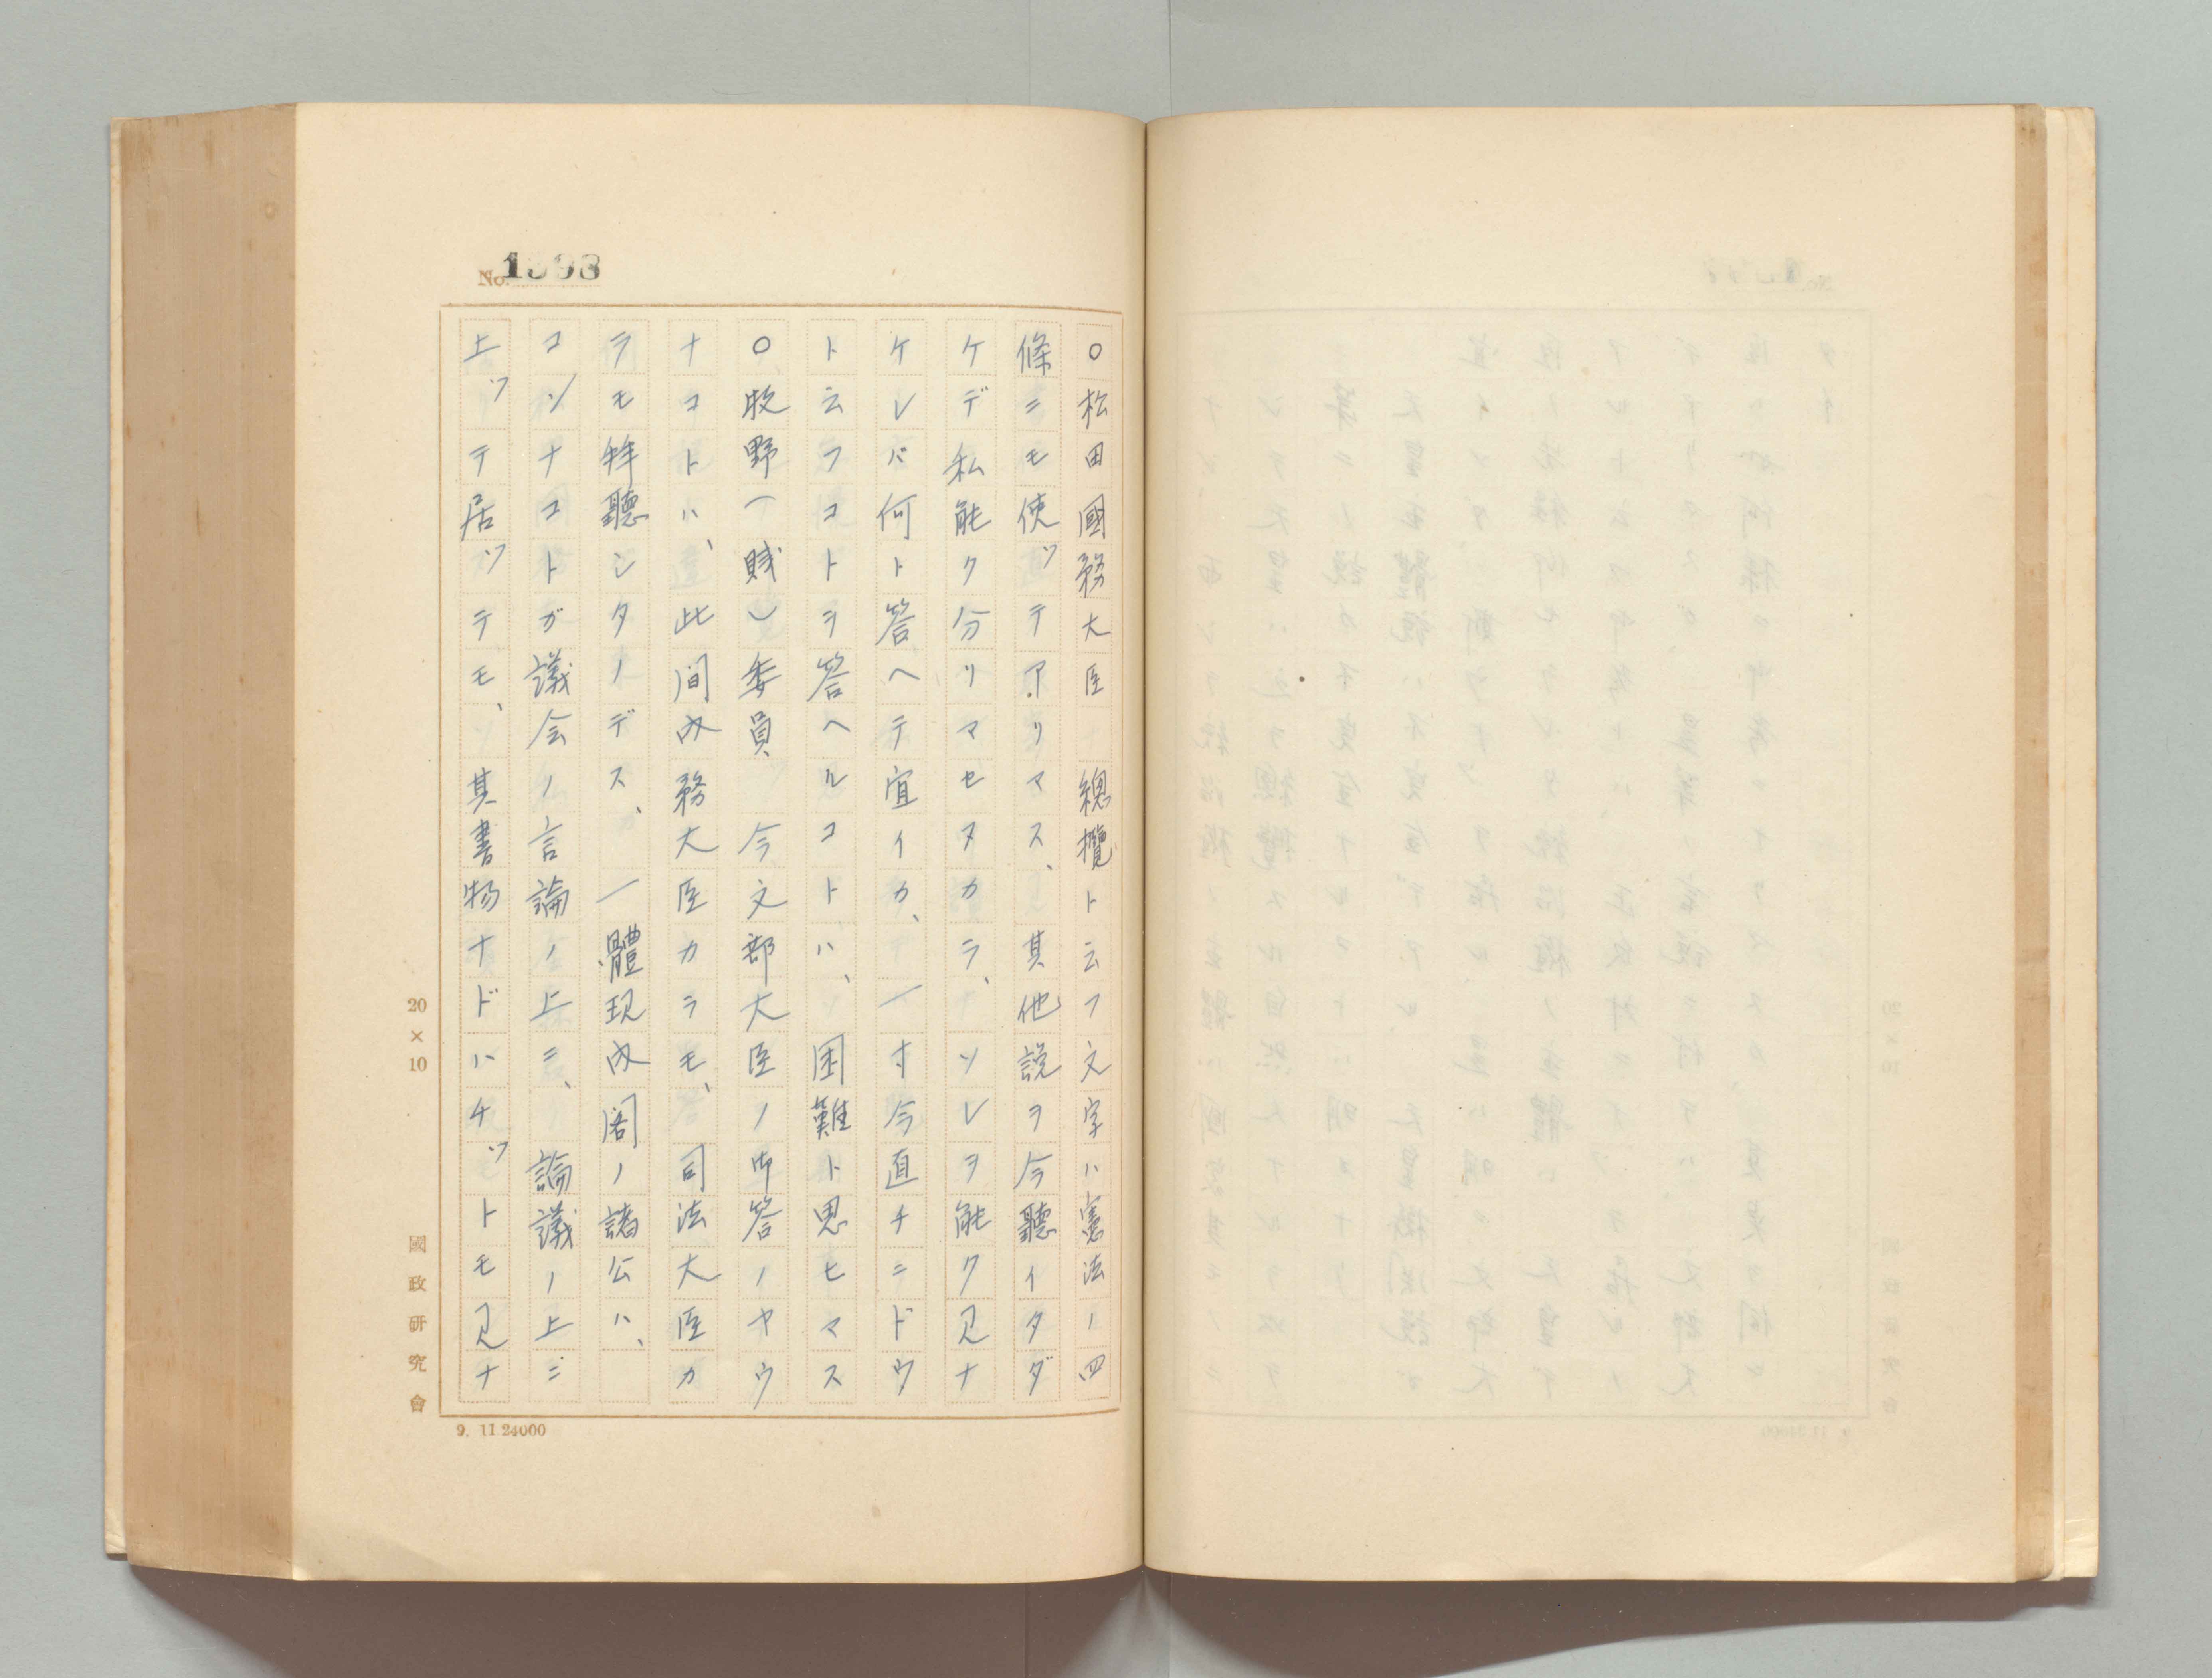 No. 1398
○松田國務大臣 總攬ト云フ文字ハ憲法ノ四
條ニモ使ッテアリマス、其他説ヲ今聽イタダ
ケデ私能ク分リマセヌカラ、ソレヲ能ク見ナ
ケレバ何ト答ヘテ宜イカ、一寸今直チニドウ
ト云フコトヲ答ヘルコトハ、困難ト思ヒマス
○牧野(賤)委員 今文部大臣ノ御答ノヤウ
ナコトハ、此間内務大臣カラモ、司法大臣カ
ラモ拝聽シタノデス、一體現内閣ノ諸公ハ、
コンナコトガ議会ノ言論ノ上ニ、論議ノ上ニ
上ッテ居ッテモ、其書物ナドハチットモ見ナ
20×10
國政研究會
9. 11.24000